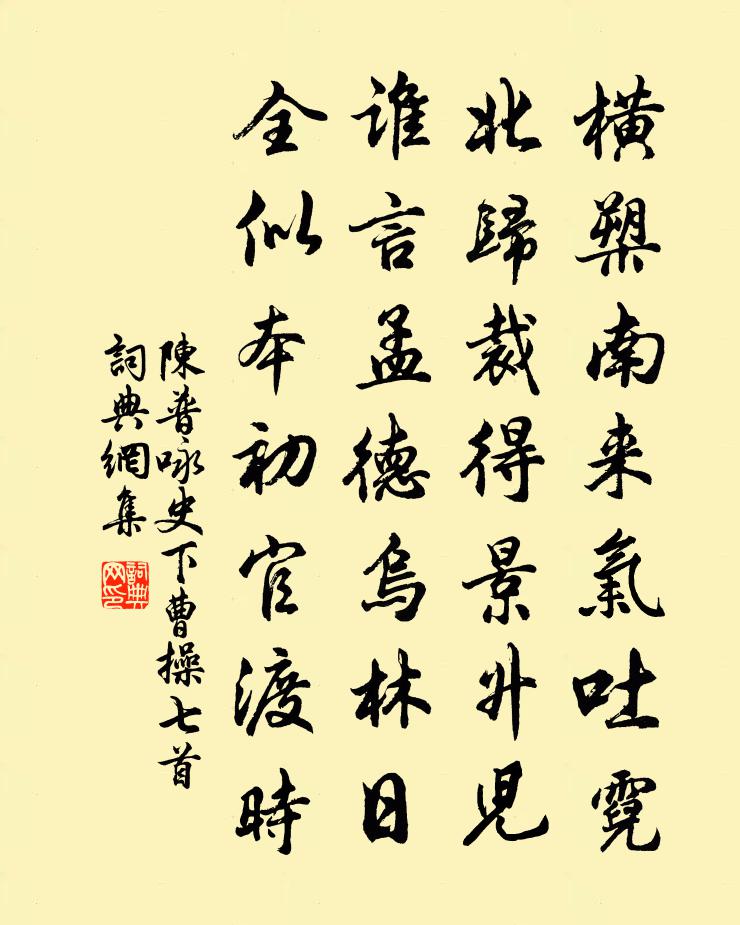 橫槊南来氣吐霓
北歸裁得景升兒
誰言孟德烏林日
全似本初官渡時
陳普咏史下曹操七首
詞典網集
詞典网印